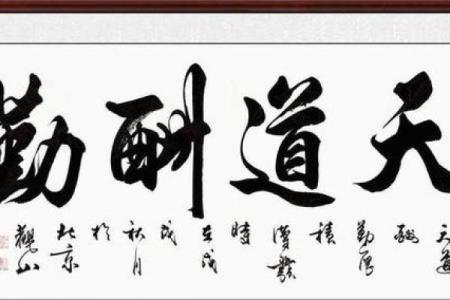 天道酬勤
天道酬勤厚積薄發時在戊戌秋月於北京觀山